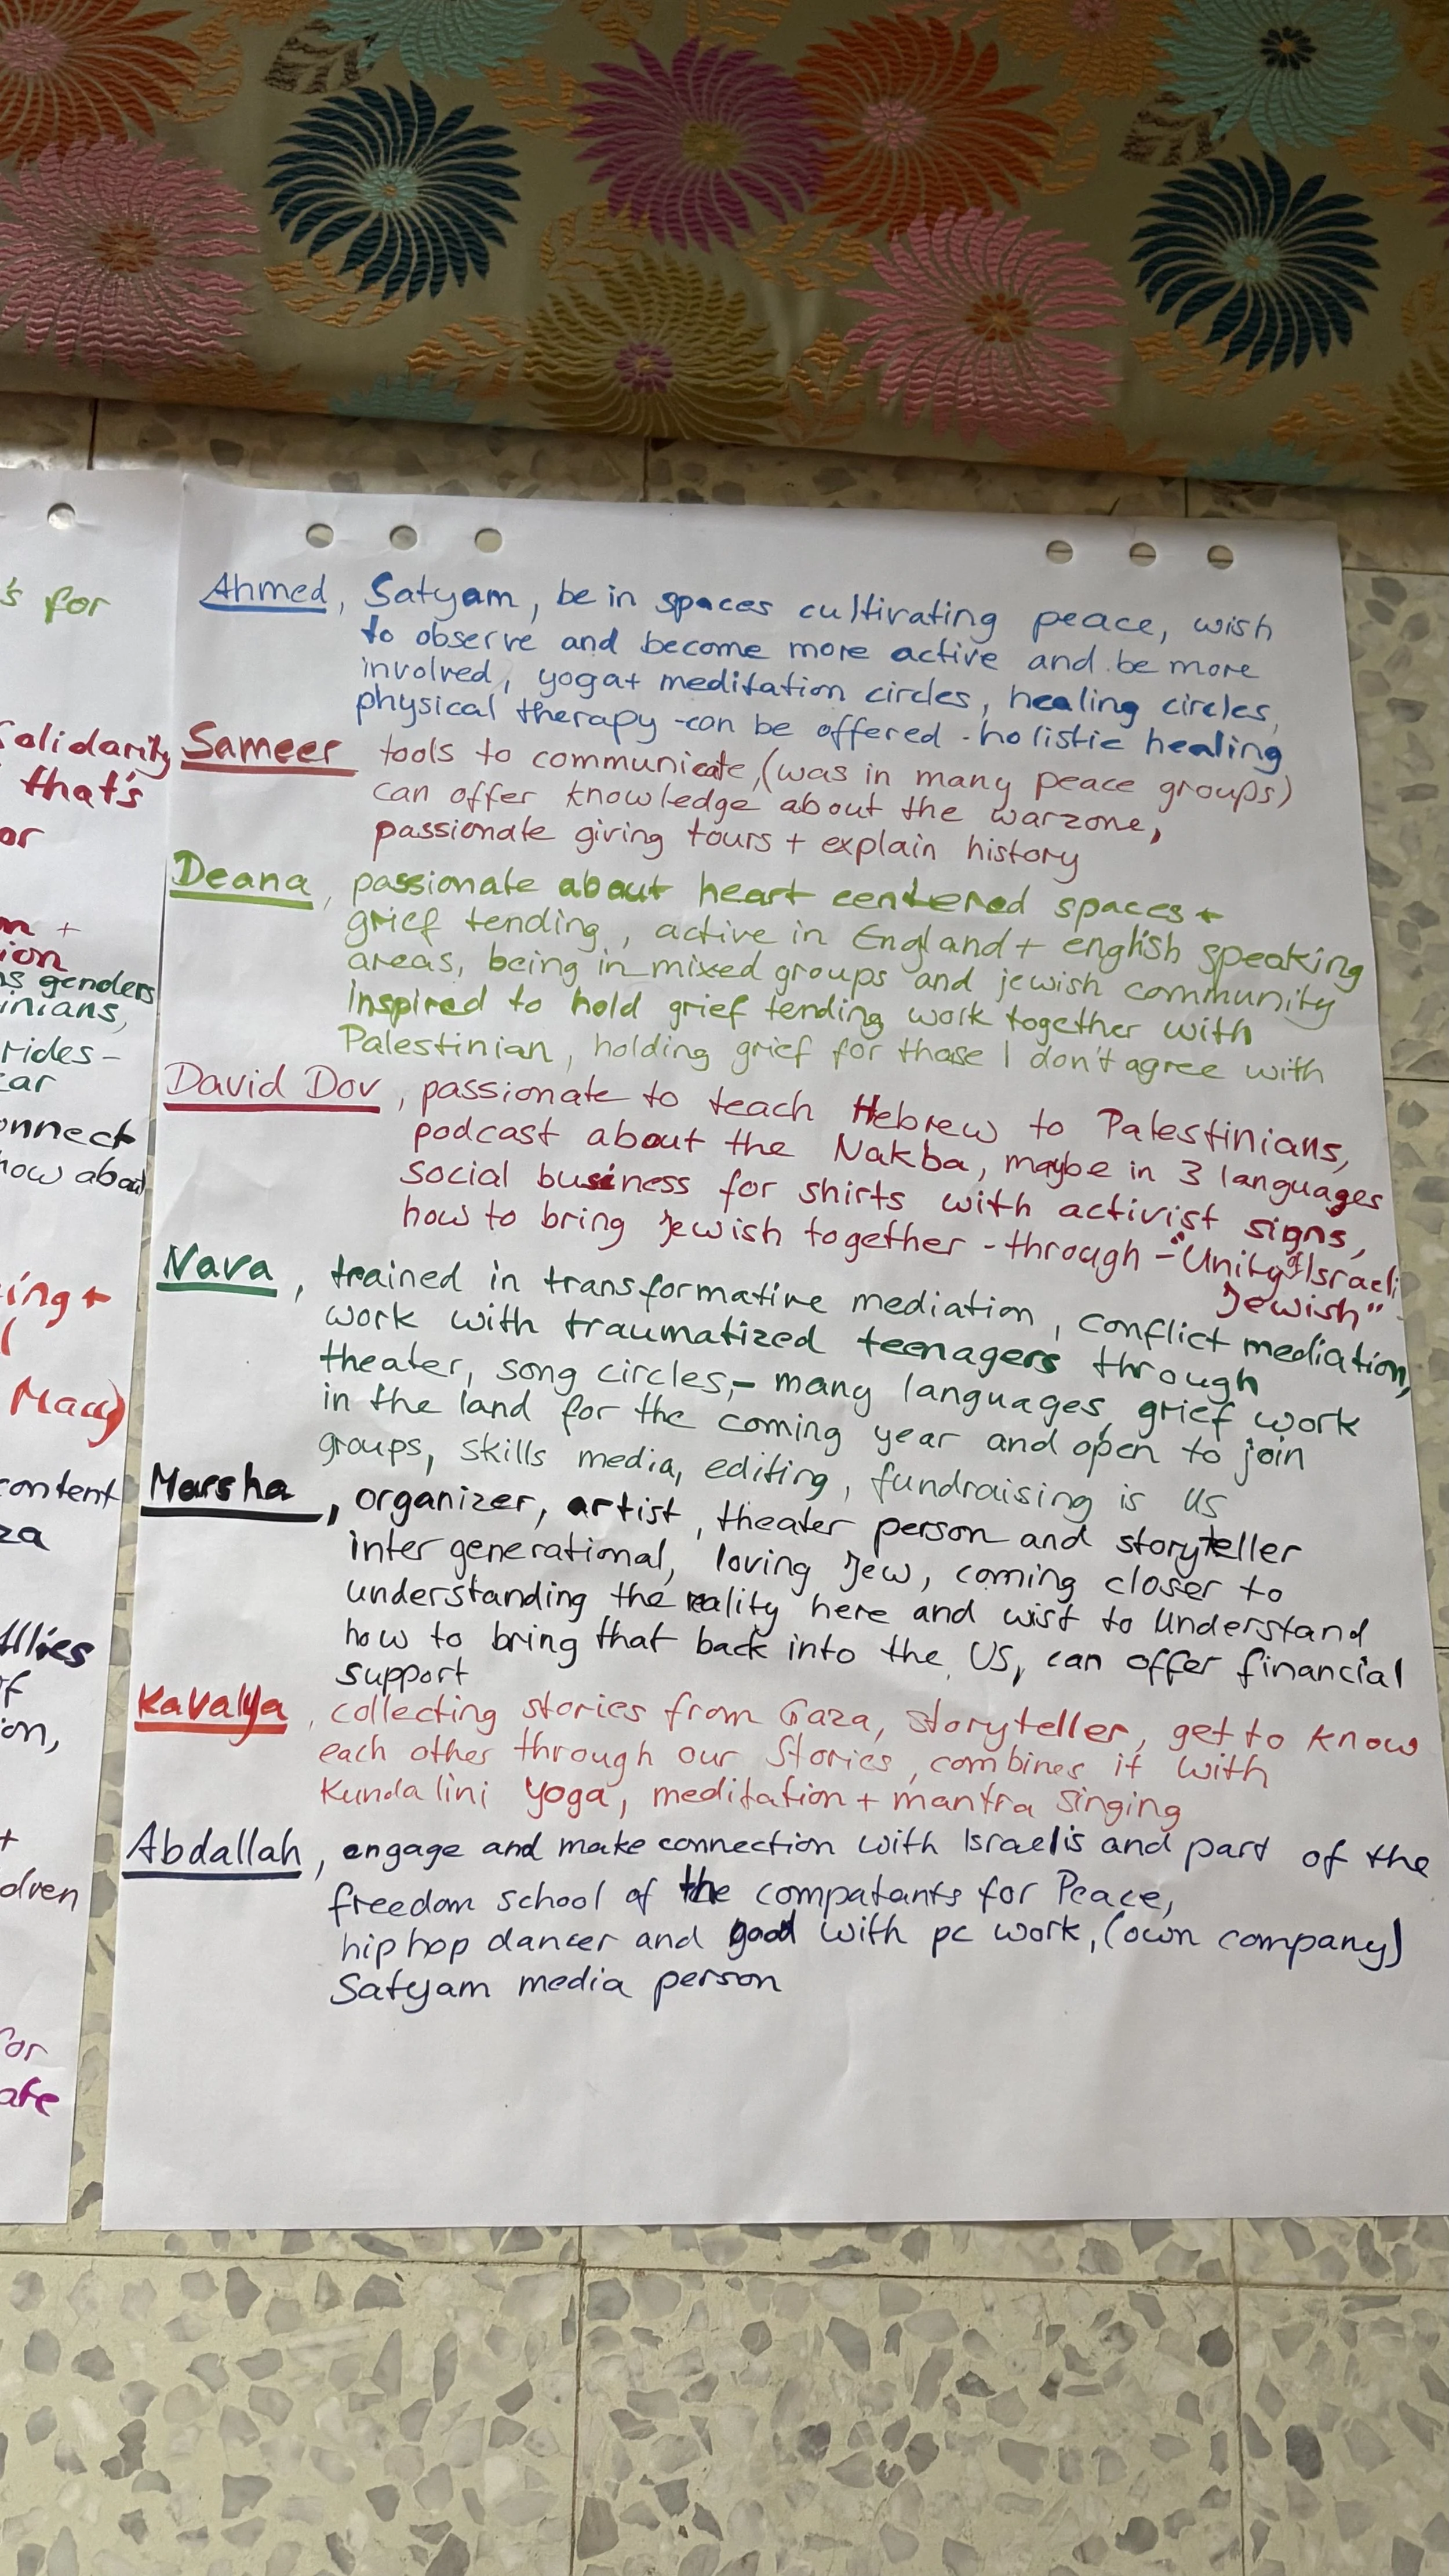 's for
Solidarity
that's
or
+
ion
genders
inians,
rides -
ear
onnect
how about
ing +
content
za
Allies
of
ion,
+
or
Ahmed, Satyam, be in spaces cultivating peace, wish
to observe and become more active and be more
involved, yoga + meditation circles, healing circles,
physical therapy - can be offered - holistic healing
Sameer tools to communicate, (was in many peace groups)
can offer knowledge about the warzone,
passionate giving tours + explain history
Deana, passionate about heart centered spaces +
grief tending, active in England + english speaking
areas, being in mixed groups and jewish community
Inspired to hold grief tending work together with
Palestinian, holding grief for those I don't agree with
David Dov, passionate to teach Hebrew to Palestinians,
podcast about the Nakba, maybe in 3 languages
social business for shirts with activist signs,
how to bring Jewish together - through - "Unity of Israeli
Jewish"
Nava, trained in transformative mediation, conflict mediation,
work with traumatized teenagers through
theater, song circles, - many languages, grief work
in the land for the coming year and open to join
groups, skills media, editing, fundraising is US
Marsha, organizer, artist, theater person and storyteller
inter generational, loving Jew, coming closer to
understanding the reality here and wist to understand
how to bring that back into the US, can offer financial
support
Kavalya, collecting stories from Gaza, storyteller, get to know
each other through our Stories, combines it with
Kundalini Yoga, meditation + mantra singing
Abdallah, engage and make connection with Israelis and part of the
freedom school of the compatants for Peace,
hip hop dancer and good with pc work, (own company)
Satyam media person